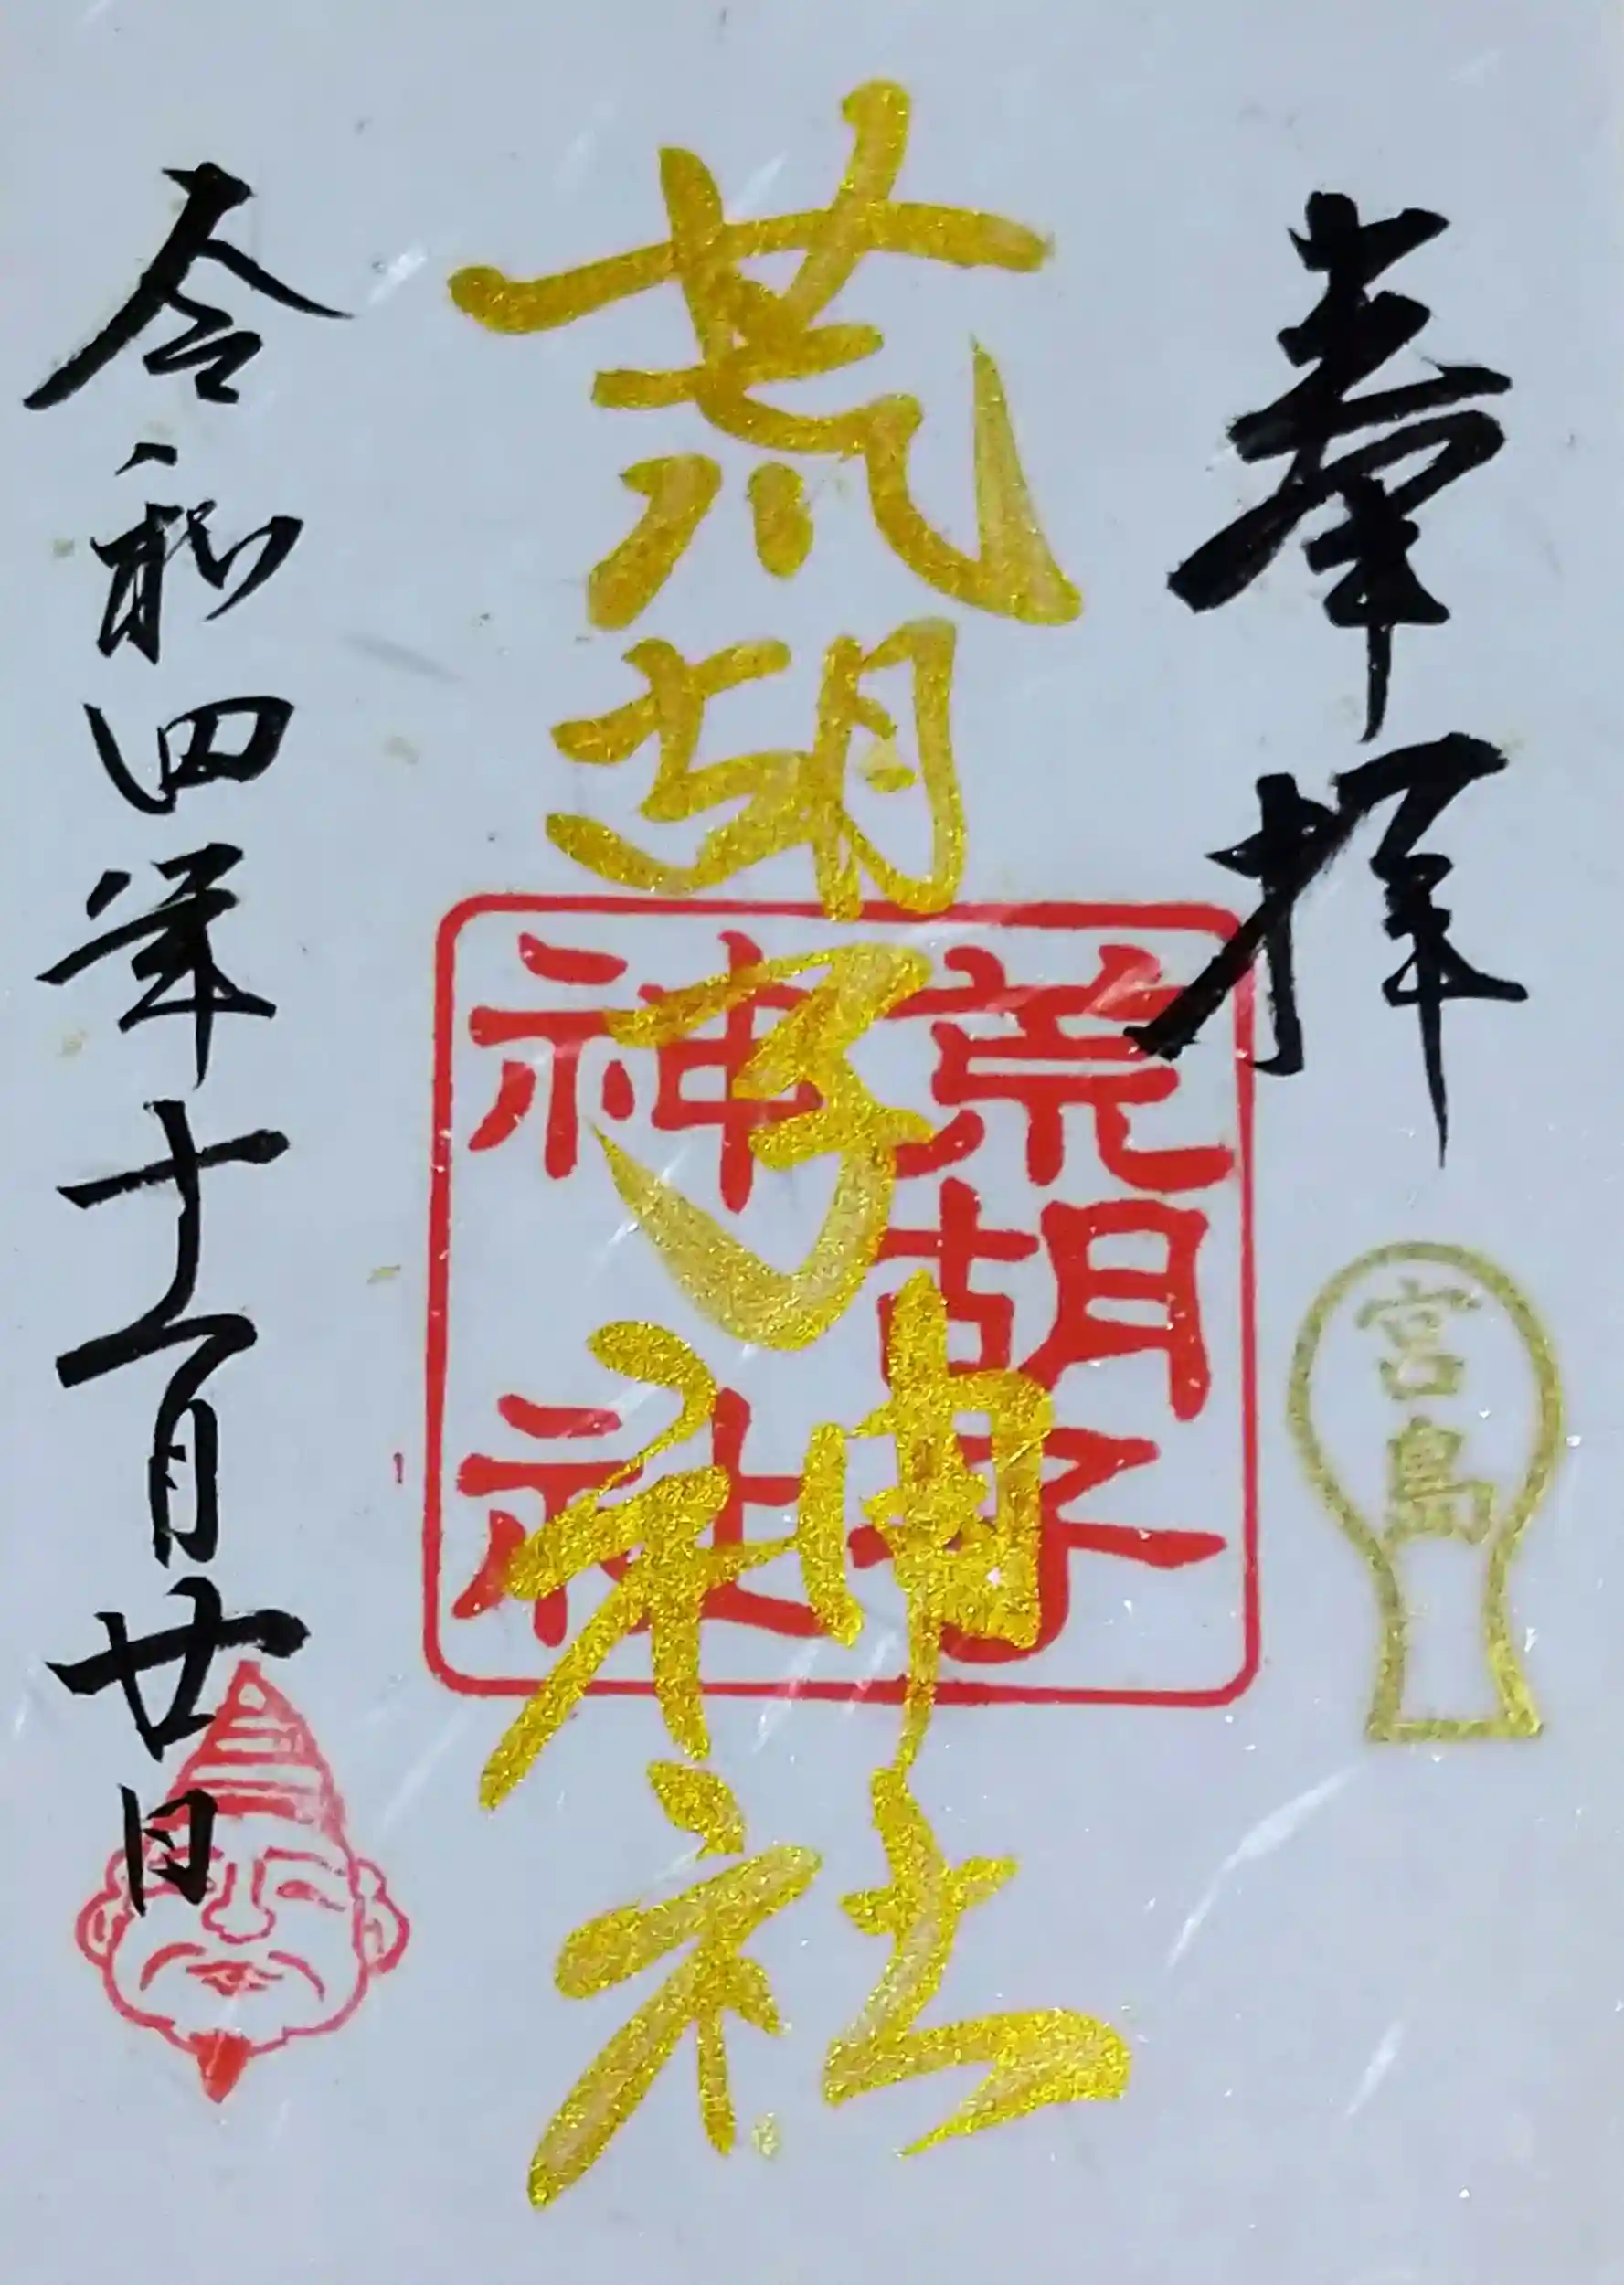 奉拝
宮島
荒胡子神社
荒胡子
神社
令和四年十一月廿日